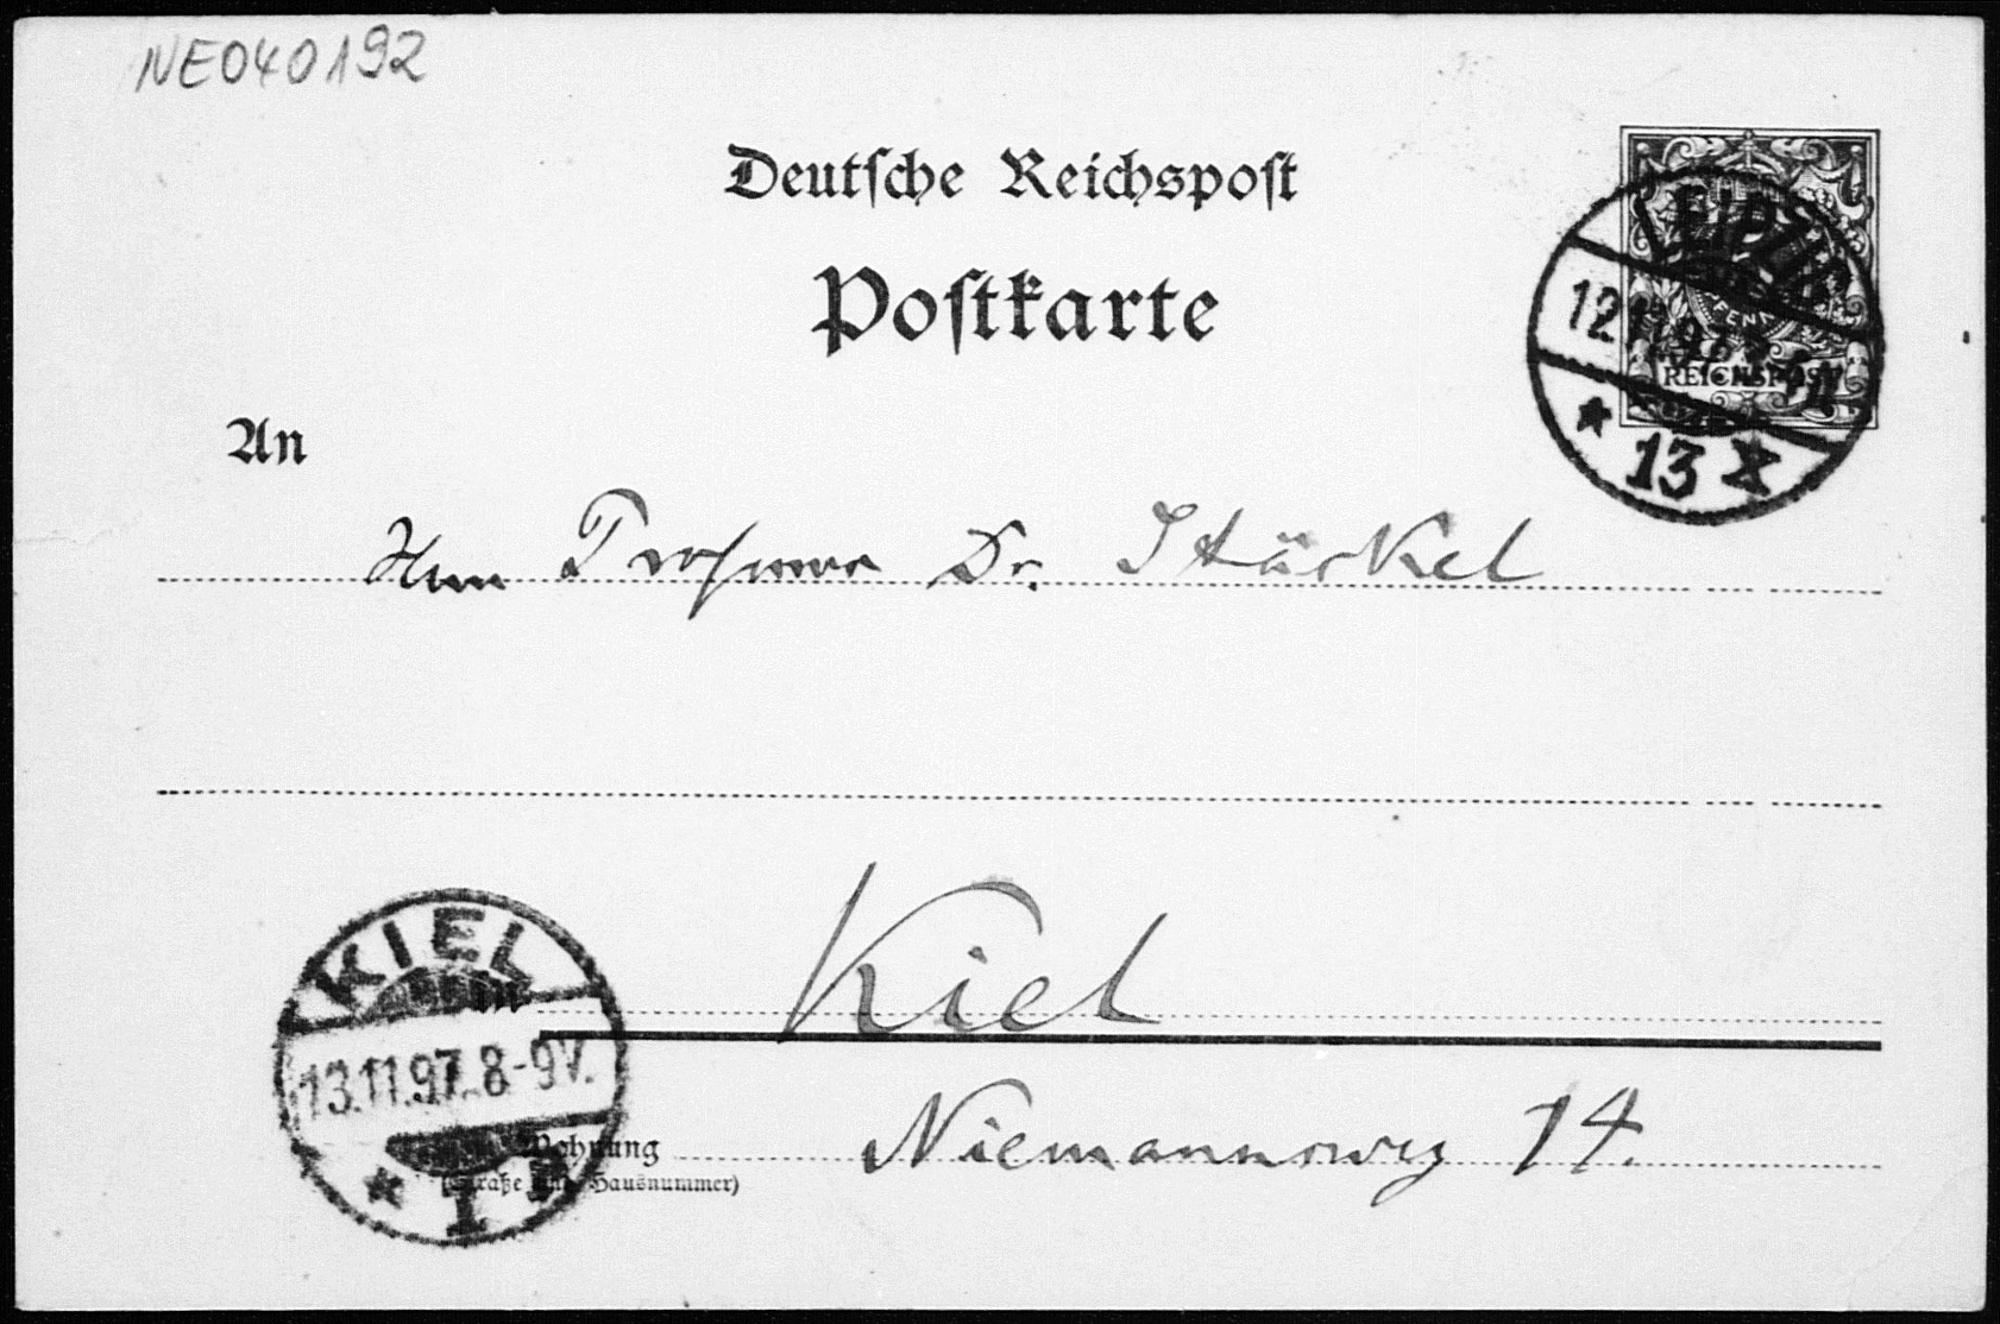 NE040192
Deutsche Reichspost
Postkarte
LEIPZIG
12.11.97
PFENNIG
REICHSPOST
* 13 X
An
Herrn Professor Dr. Stäckel
Kiel
KIEL
in
13.11.97. 8-9V.
* 1
Niemannsweg 14.
Wohnung
(Straße und Hausnummer)